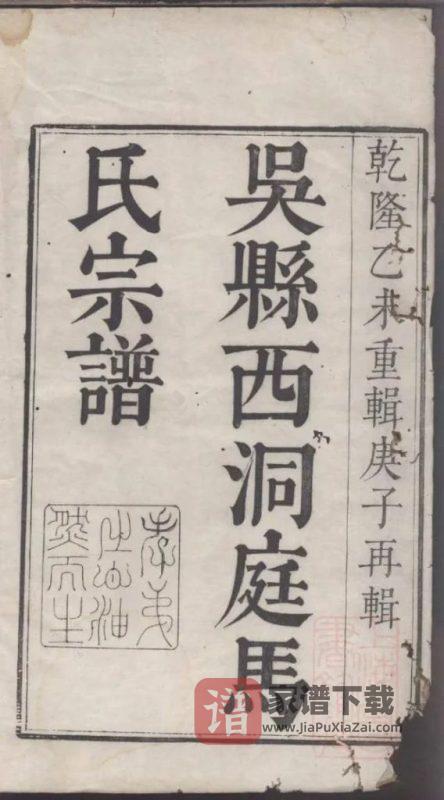 乾隆乙未重輯庚子再輯
吳縣西洞庭馬
氏宗譜
孝弟
之心油
然而生
谱 家谱下载
www.JiaPuXiaZai.com